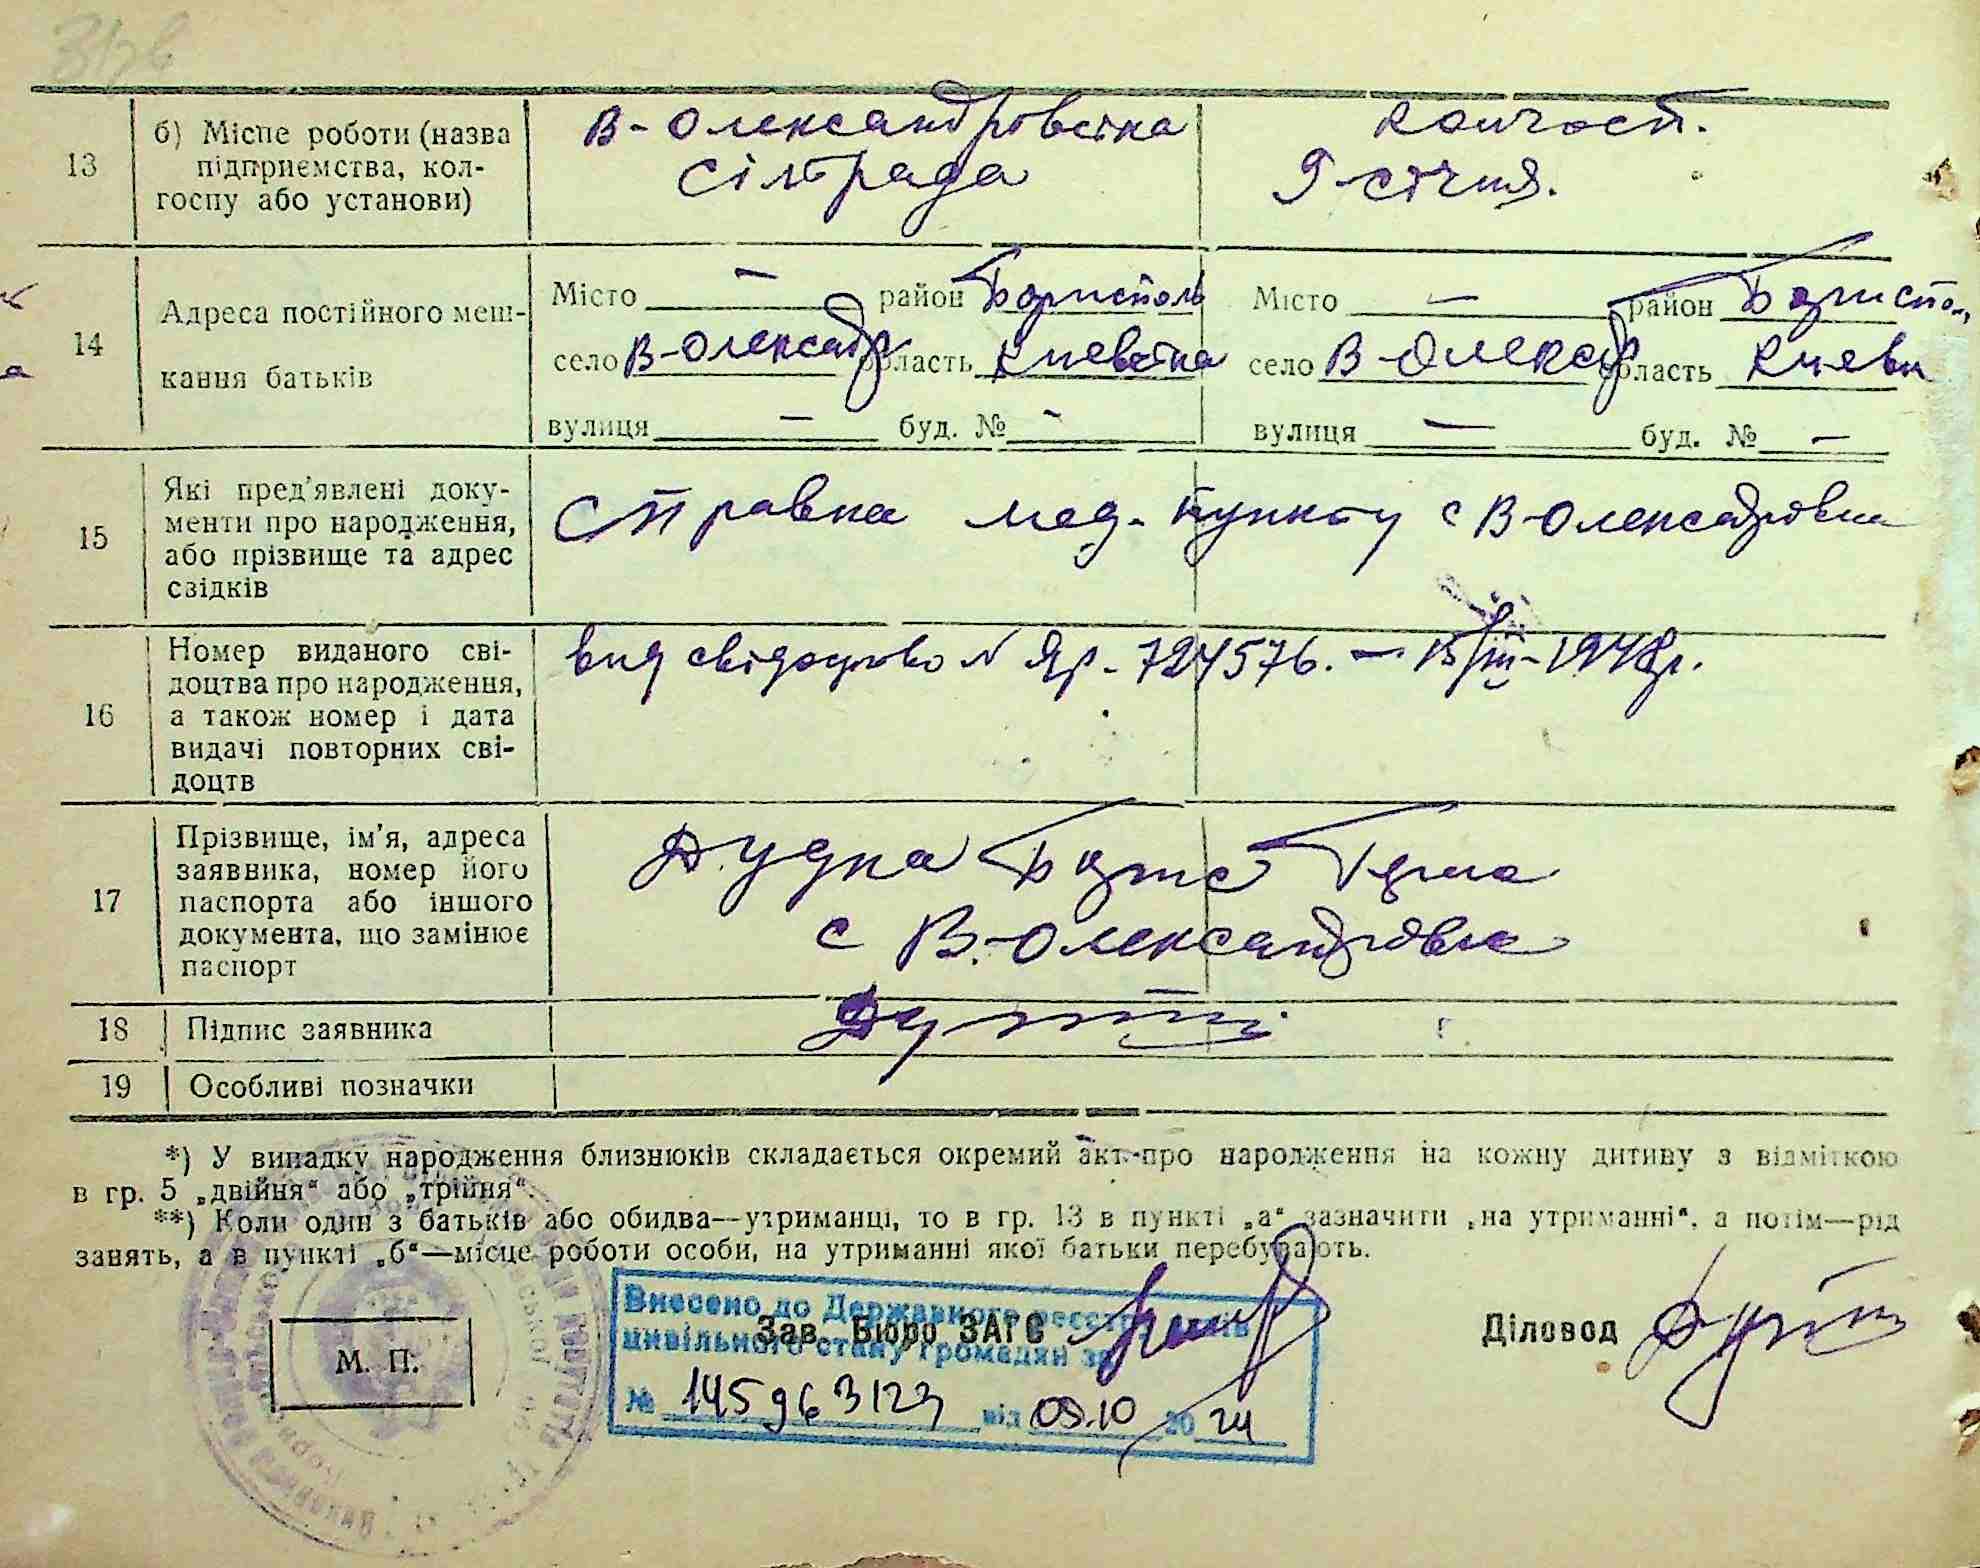 13
б) Місце роботи (назва
підприємства, кол-
госпу або установи)
В-Олександровська
сільрада
колгосп.
9-січня.
14
Адреса постійного меш-
кання батьків
Місто — район Бориспольс
село В-Олександр область Киевська
вулиця — буд. № -
Місто — район Борисполь,
село В-Олександр область Киевськ
вулиця — буд. № —
15
Які пред'явлені доку-
менти про народження,
або прізвище та адрес
свідків
Справка мед. пункту с В-Олександровка
16
Номер виданого сві-
доцтва про народження,
а також номер і дата
видачі повторних сві-
доцтв
вид свідоцтво № Яр-724576. — 15/III-1948р.
17
Прізвище, ім'я, адреса
заявника, номер його
паспорта або іншого
документа, що замінює
паспорт
Дудка Борис
с В.-Олександровка
18
Підпис заявника
19
Особливі позначки
*) У випадку народження близнюків складається окремий акт про народження на кожну дитину з відміткою
в гр. 5 „двійня“ або „трійня“.
**) Коли один з батьків або обидва—утриманці, то в гр. 13 в пункті „а“ зазначити „на утриманні“, а потім—рід
занять, а в пункті „б“—місце роботи особи, на утриманні якої батьки перебувають.
М. П.
Зав. Бюро ЗАГС
Діловод
Внесено до Державного реєстру актів
цивільного стану громадян за
№ 145963123 від 09.10 2024